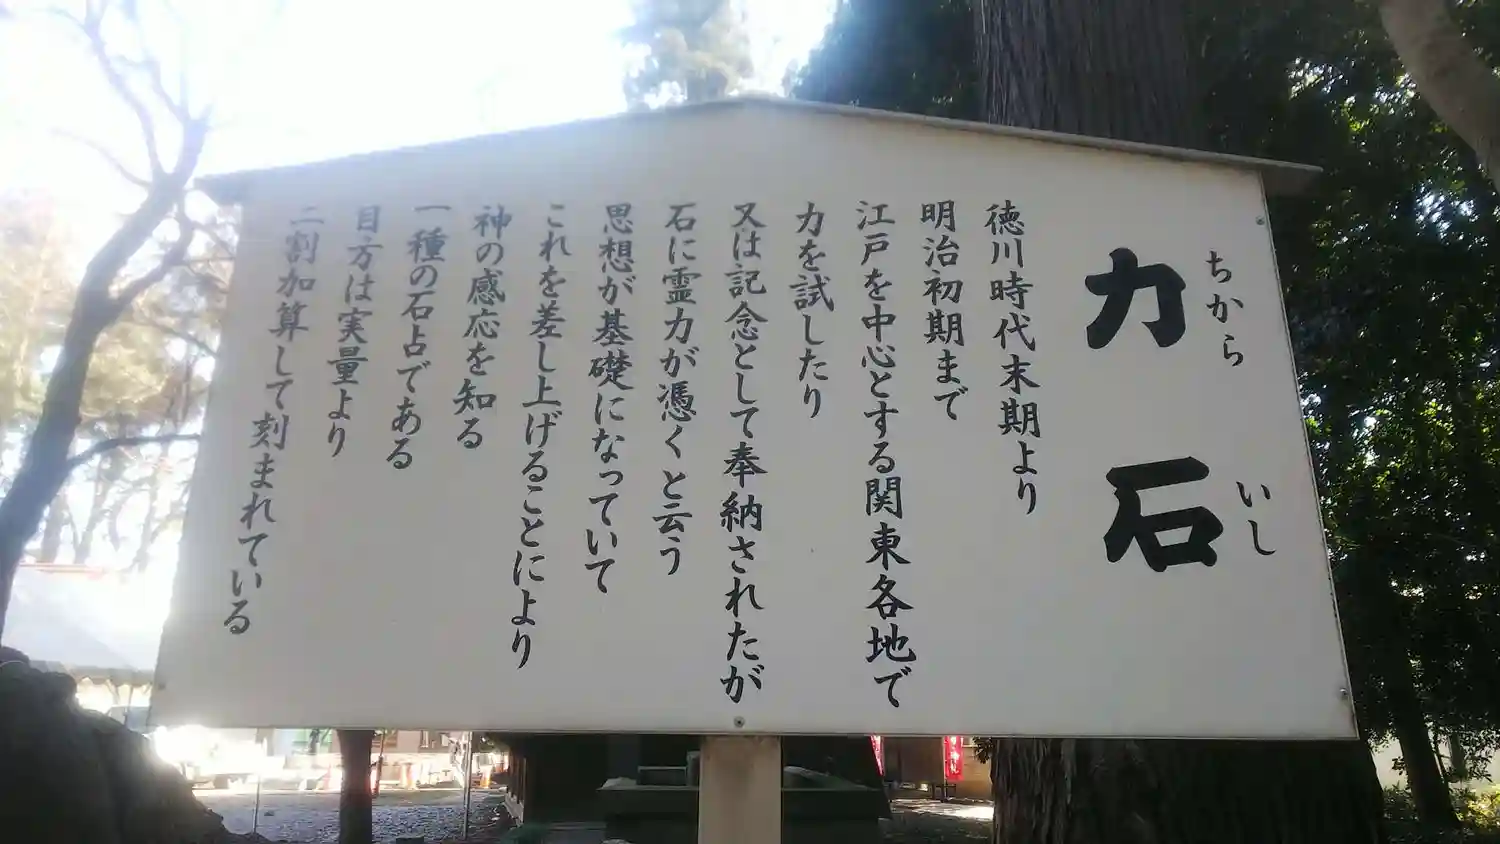 力石
ちからいし
徳川時代末期より
明治初期まで
江戸を中心とする関東各地で
力を試したり
又は記念として奉納されたが
石に霊力が憑くと云う
思想が基礎になっていて
これを差し上げることにより
神の感応を知る
一種の石占である
目方は実量より
二割加算して刻まれている